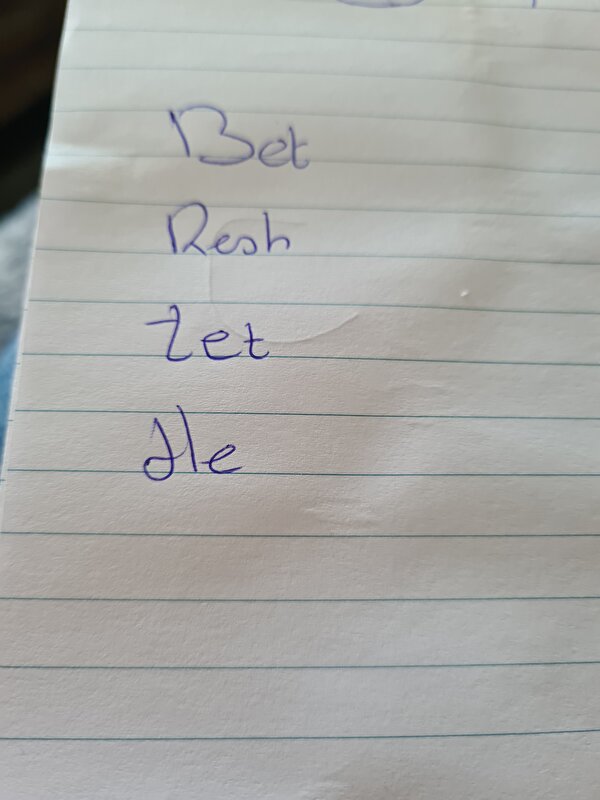 Bet
Resh
Zet
He